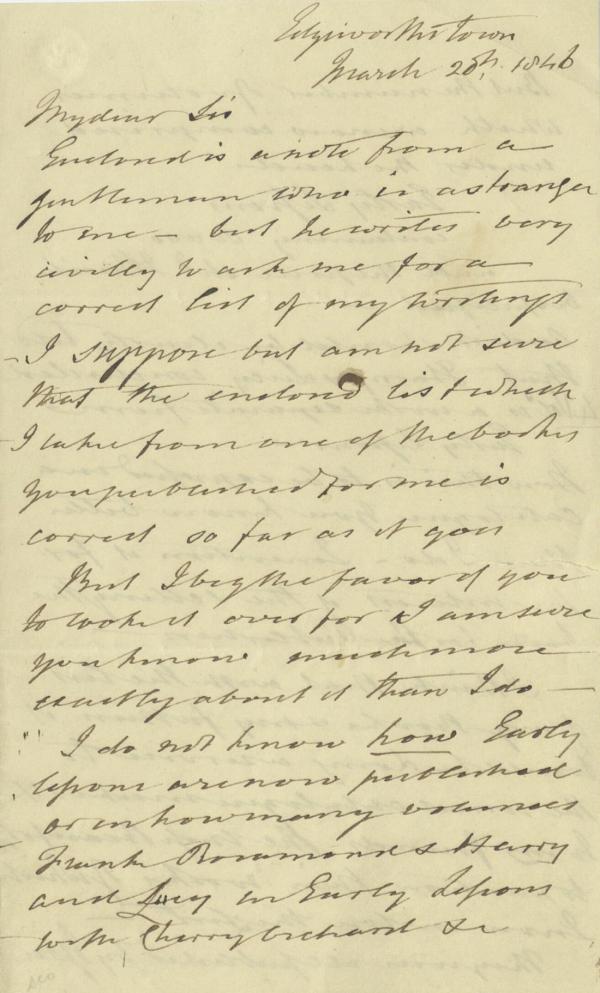 Edgeworthstown
March 28th. 1846
My dear Sir
Enclosed is a note from a
gentleman who is a stranger
to me — but he writes very
civilly to ask me for a
correct list of my writings
- I suppose but am not sure
that the enclosed list which
I take from one of the books
you published for me is
correct so far as it goes
But I beg the favor of you
to look it over for I am sure
you know much more
exactly about it than I do —
I do not know how Early
Lessons are now published
or in how many volumes
Frank Rosamond & Harry
and Lucy in Early Lessons
with Cherry Orchard &c